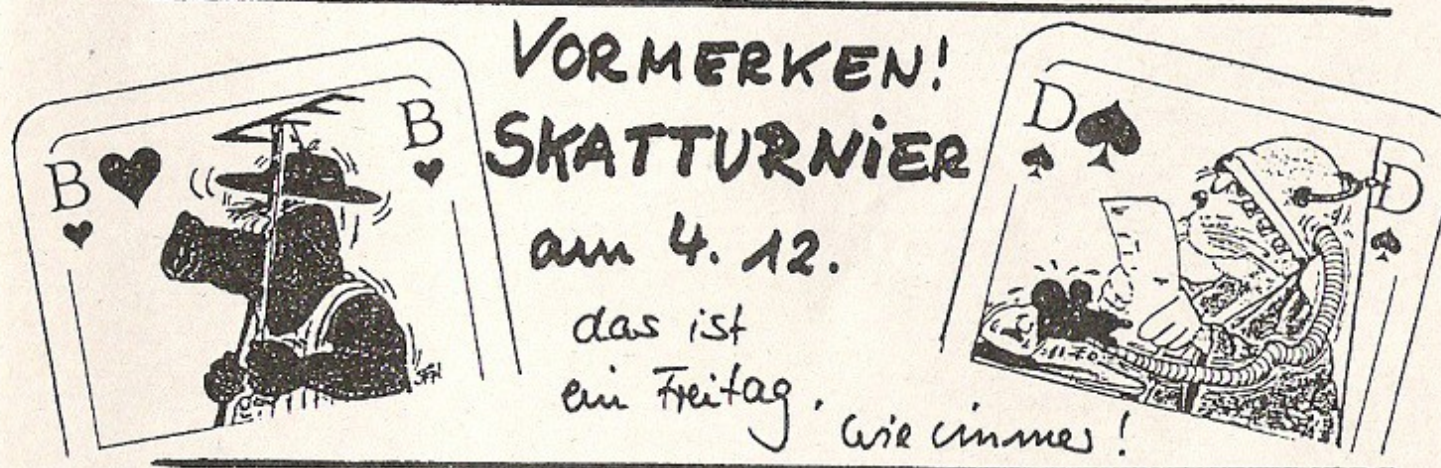 VORMERKEN!
SKATTURNiER
am 4. 12.
das ist
ein Freitag,
wie immer!
B
B
D
D